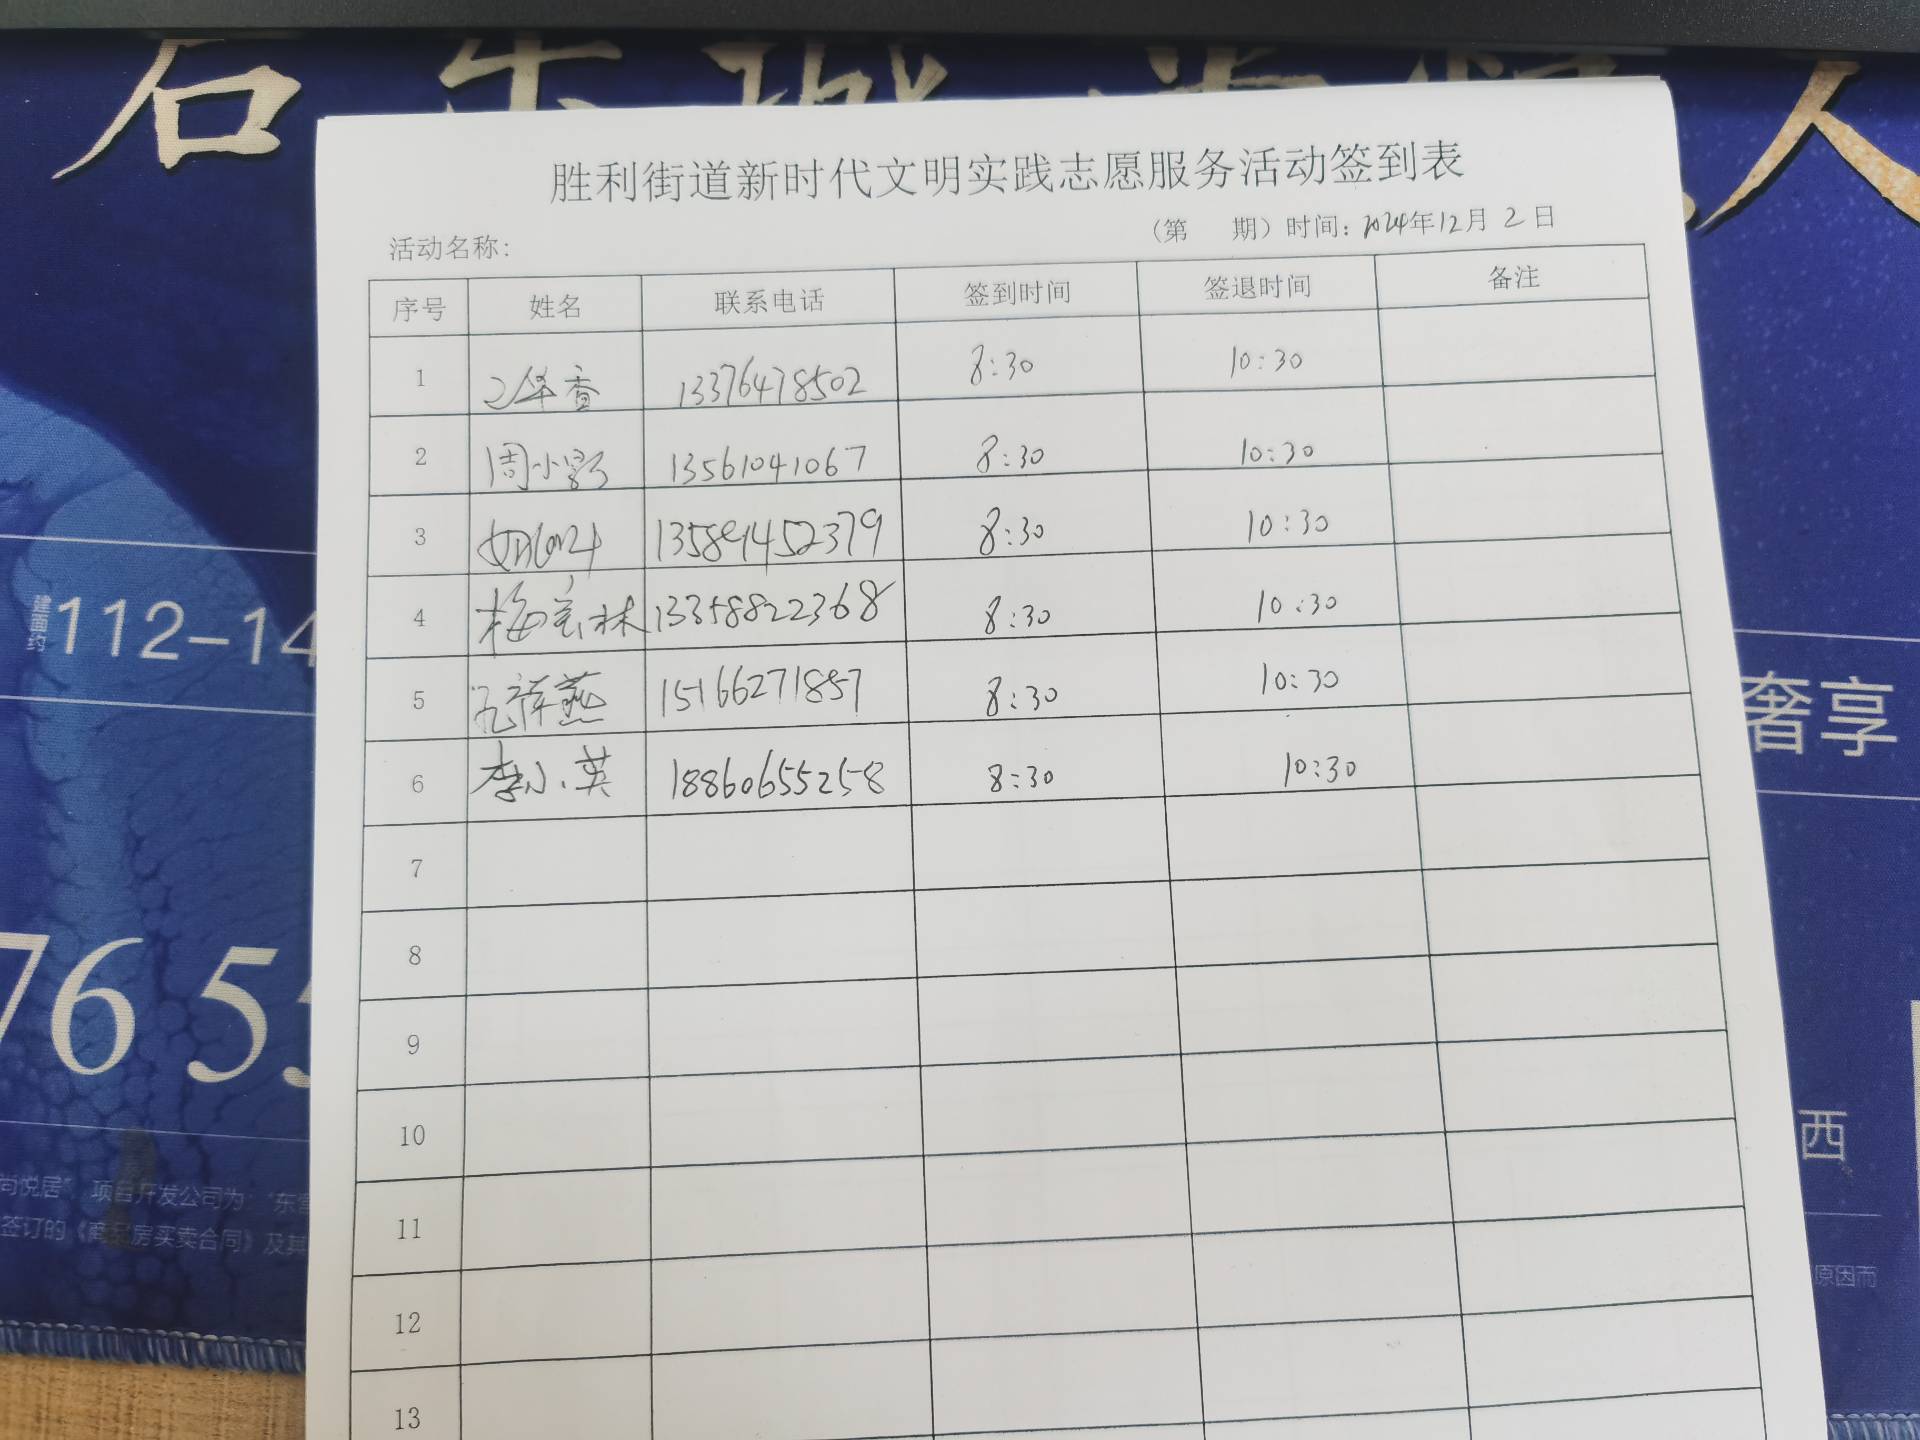 胜利街道新时代文明实践志愿服务活动签到表
活动名称: (第 期)时间: 2024年12月2日
序号 姓名 联系电话 签到时间 签退时间 备注
1 13376478502 8:30 10:30
2 周小影 13561041067 8:30 10:30
3 13589452379 8:30 10:30
4 梅宝林 13358822368 8:30 10:30
5 孔祥燕 15166271857 8:30 10:30
6 李小英 18860655258 8:30 10:30
7
8
9
10
11
12
13
建面约112-14
奢享
76 55
西
尚悦居”项目开发公司为:“东营
签订的《商品房买卖合同》及其
原因而